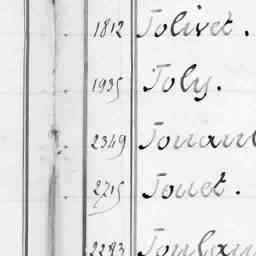 1812 Jolivet.
1935 Joly.
2349
2715 Jouet.
2283